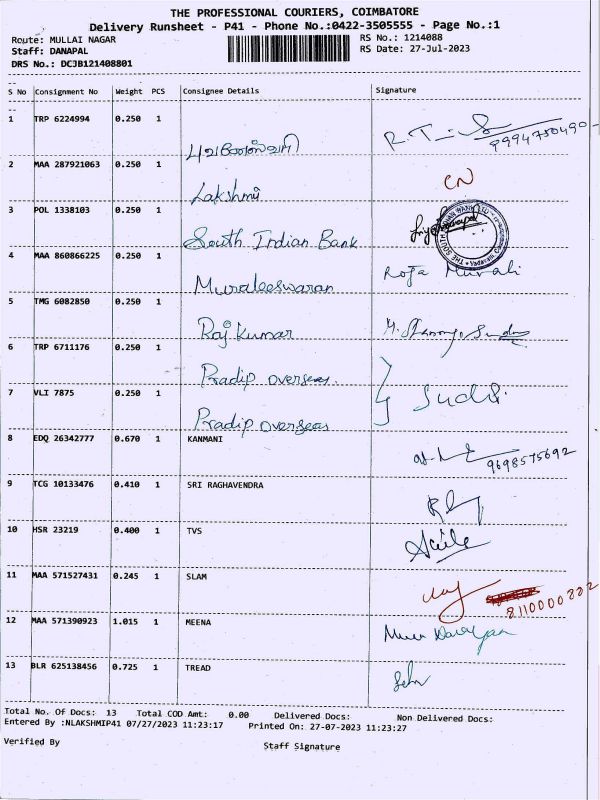 THE PROFESSIONAL COURIERS, COIMBATORE
Delivery Runsheet - P41 - Phone No.:0422-3505555 - Page No.:1
Route: MULLAI NAGAR RS No.: 1214088
Staff: DANAPAL RS Date: 27-Jul-2023
DRS No.: DCJB121408801
S No Consignment No Weight PCS Consignee Details Signature
1 TRP 6224994 0.250 1
9994750490
2 MAA 287921063 0.250 1 Lakshmi CN
3 POL 1338103 0.250 1 South Indian Bank
4 MAA 860866225 0.250 1 Muraleeswaran Roja Murali
5 TMG 6082850 0.250 1 Raj Kumar
6 TRP 6711176 0.250 1 Pradip overseas.
7 VLI 7875 0.250 1 Pradip overseas
8 EDQ 26342777 0.670 1 KANMANI 9698575692
9 TCG 10133476 0.410 1 SRI RAGHAVENDRA
10 HSR 23219 0.400 1 TVS
11 MAA 571527431 0.245 1 SLAM
12 MAA 571390923 1.015 1 MEENA
13 BLR 625138456 0.725 1 TREAD
Total No. Of Docs: 13 Total COD Amt: 0.00 Delivered Docs: Non Delivered Docs:
Entered By :NLAKSHMIP41 07/27/2023 11:23:17 Printed On: 27-07-2023 11:23:27
Verified By Staff Signature